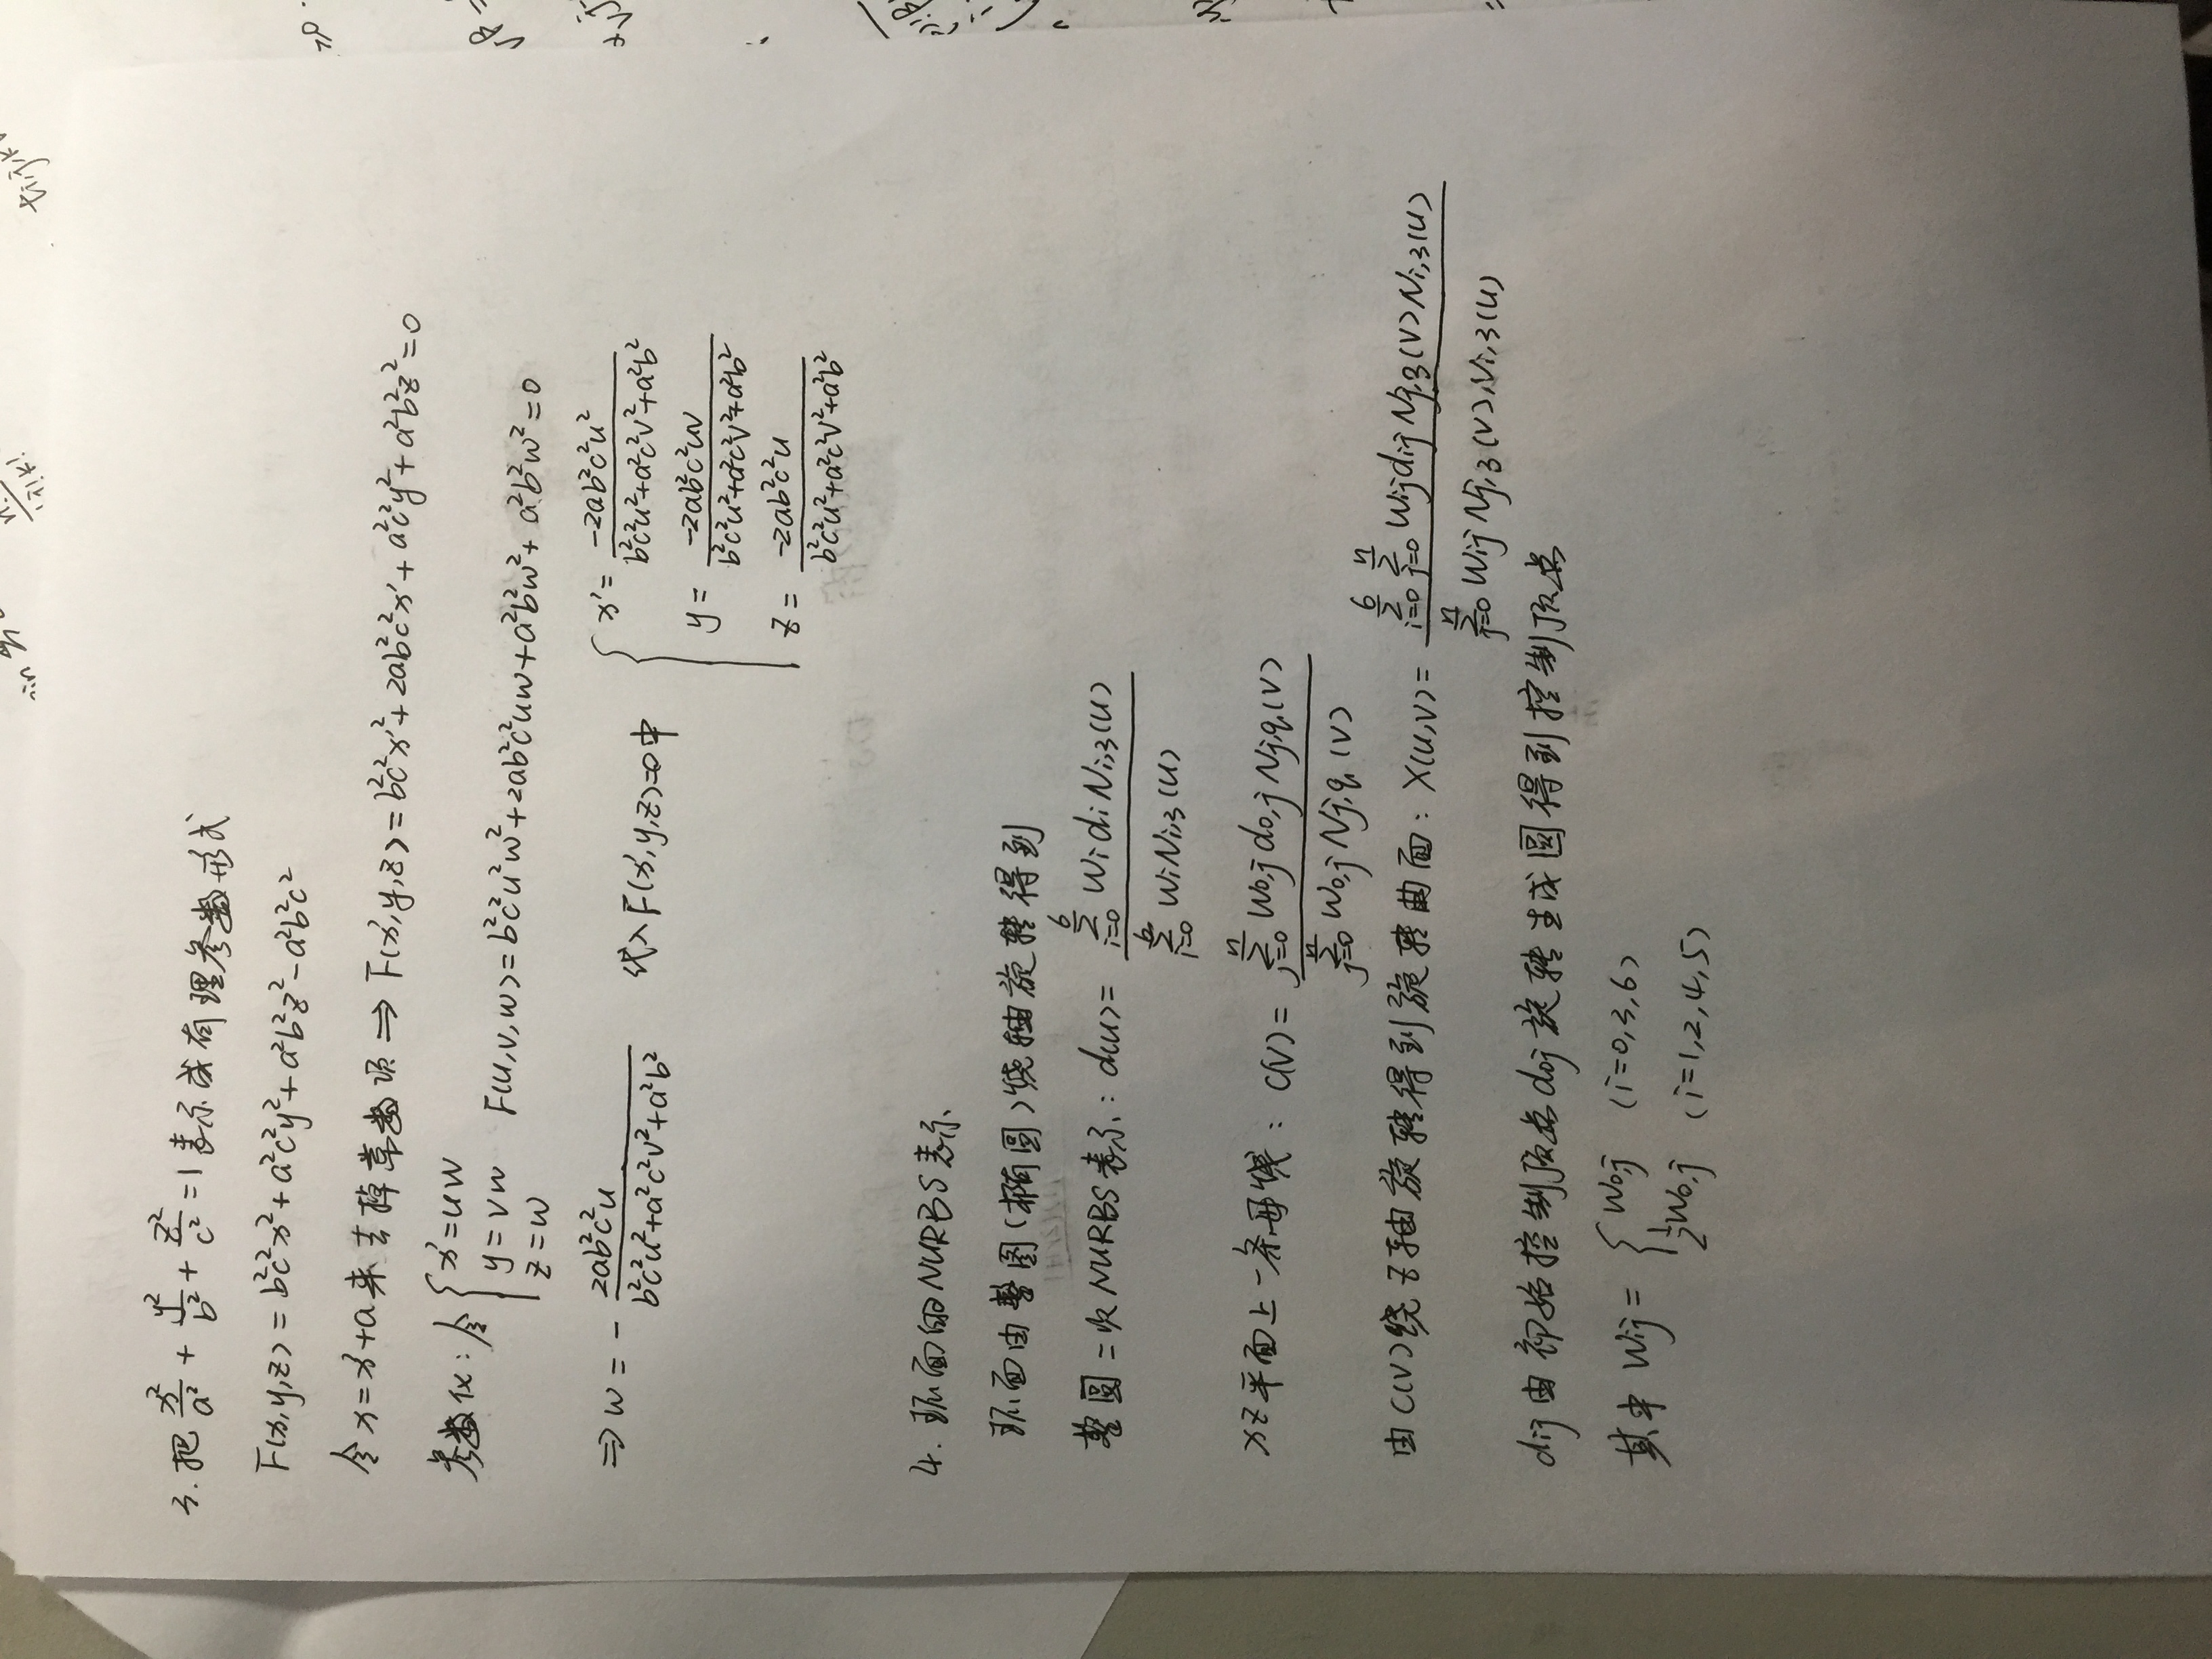 n!
i!j!k!
ti,j,k
3. 把 x²/a² + y²/b² + z²/c² = 1 表示成有理参数形式
F(x,y,z) = b²c²x² + a²c²y² + a²b²z² - a²b²c²
令 x = x'+a 来去掉常数项 ⇒ F(x',y,z) = b²c²x'² + 2ab²c²x' + a²c²y² + a²b²z² = 0
参数化: 令 { x' = uw
y = vw
z = w
F(u,v,w) = b²c²u²w² + 2ab²c²uw + a²b²w² + a²b²w² = 0
⇒ w = - 2ab²c²u / (b²c²u²+a²c²v²+a²b²) 代入 F(x',y,z)=0中
{ x' = -2ab²c²u² / (b²c²u²+a²c²v²+a²b²)
y = -2ab²c²uv / (b²c²u²+a²c²v²+a²b²)
z = -2ab²c²u / (b²c²u²+a²c²v²+a²b²)
4. 环面的NURBS表示
环面由整图(椭圆)绕轴旋转得到
整圆二次NURBS表示: d(u) = ∑_{i=0}^{6} Wi di Ni,3(u) / ∑_{i=0}^{6} Wi Ni,3(u)
xz平面上一条母线: C(V) = ∑_{j=0}^{n} W0,j d0,j Nj,q(V) / ∑_{j=0}^{n} W0,j Nj,q(V)
由C(V)绕z轴旋转得到旋转曲面: X(u,v) = ∑_{i=0}^{6} ∑_{j=0}^{n} Wij dij Nj,3(V) Ni,3(u) / ∑_{j=0}^{n} Wij Nj,3(V) Ni,3(u)
dij由初始控制顶点d0j旋转生成圆得到控制顶点
其中 Wij = { W0,j (i=0,3,6)
½W0,j (i=1,2,4,5)